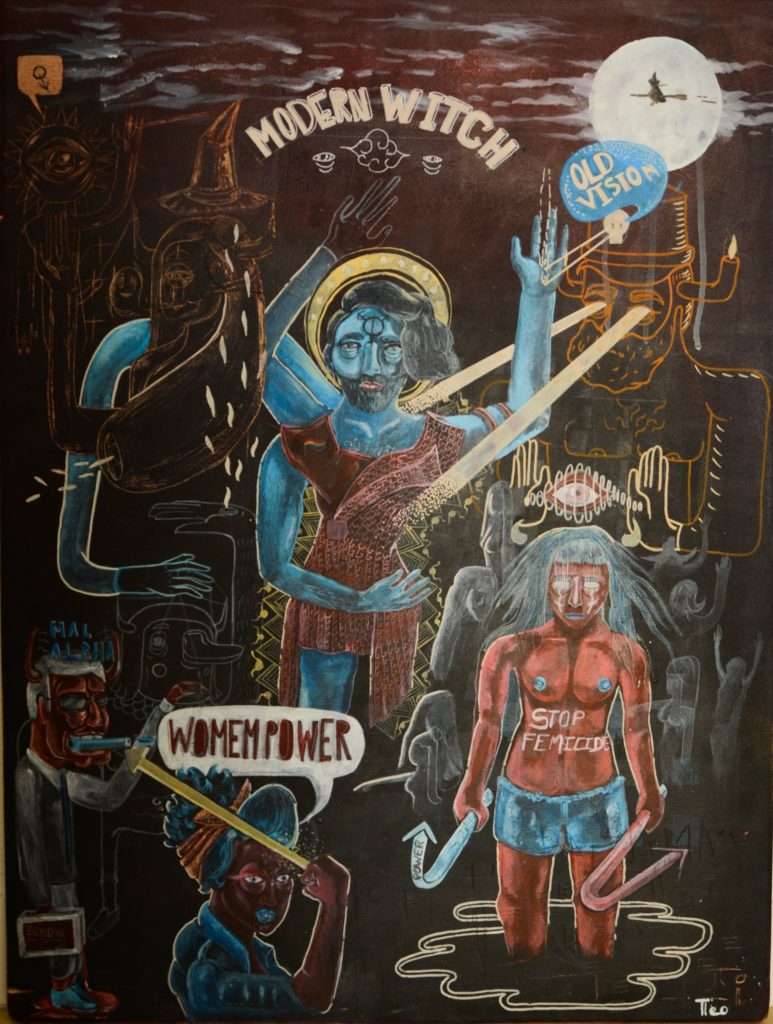 MODERN WITCH
OLD
VISION
MAL
ALPHA
WOMEMPOWER
STOP
FEMICIDE
POWER